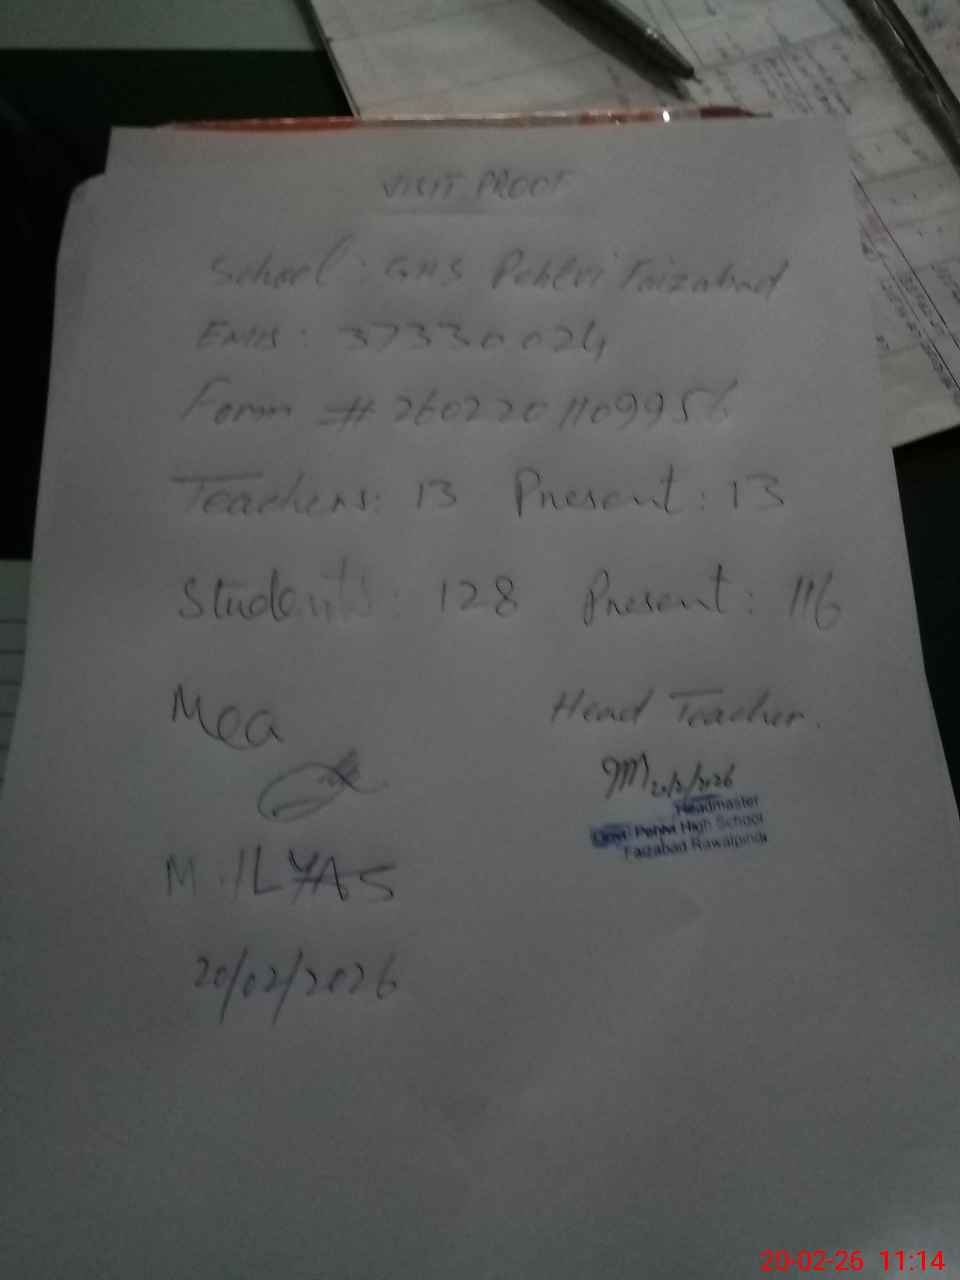 VISIT PROOF
School: GHS Pehlvi Faizabad
EMIS: 37330024
Form # 2602201109956
Teachers: 13 Present: 13
Students: 128 Present: 116
Mea
Head Teacher.
20/2/2026
Headmaster
Govt Pehlvi High School
Faizabad Rawalpindi
M. ILYAS
20/02/2026
20-02-26 11:14